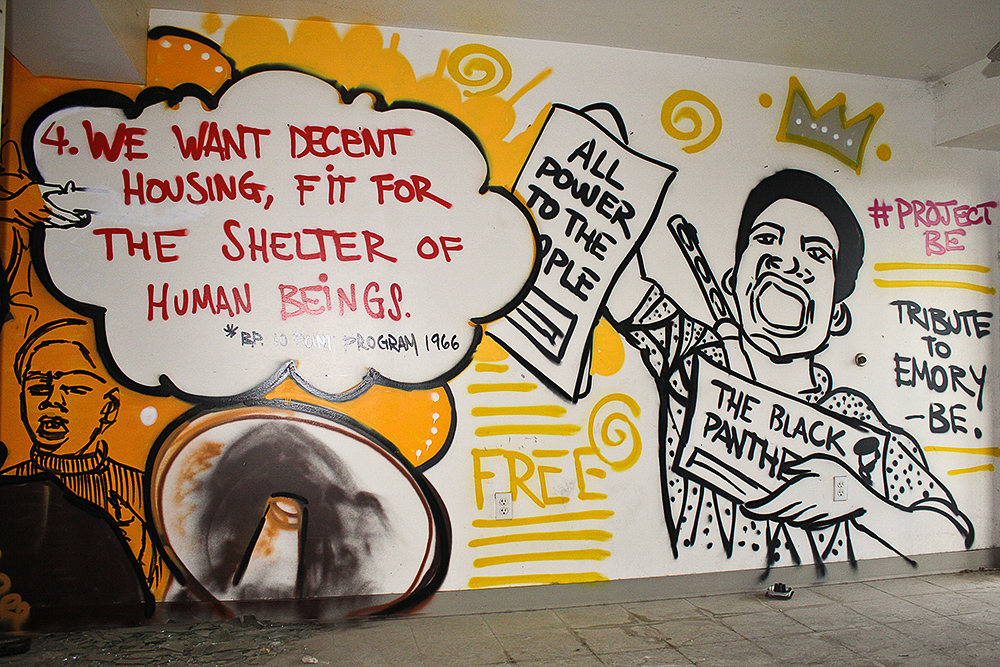 4. WE WANT DECENT
HOUSING, FIT FOR
THE SHELTER OF
HUMAN BEINGS.
*BP 10 POINT PROGRAM 1966
ALL
POWER
TO THE
OPLE
FREE
THE BLACK
PANTHE
#PROJECT
BE
TRIBUTE
TO
EMORY
-BE.